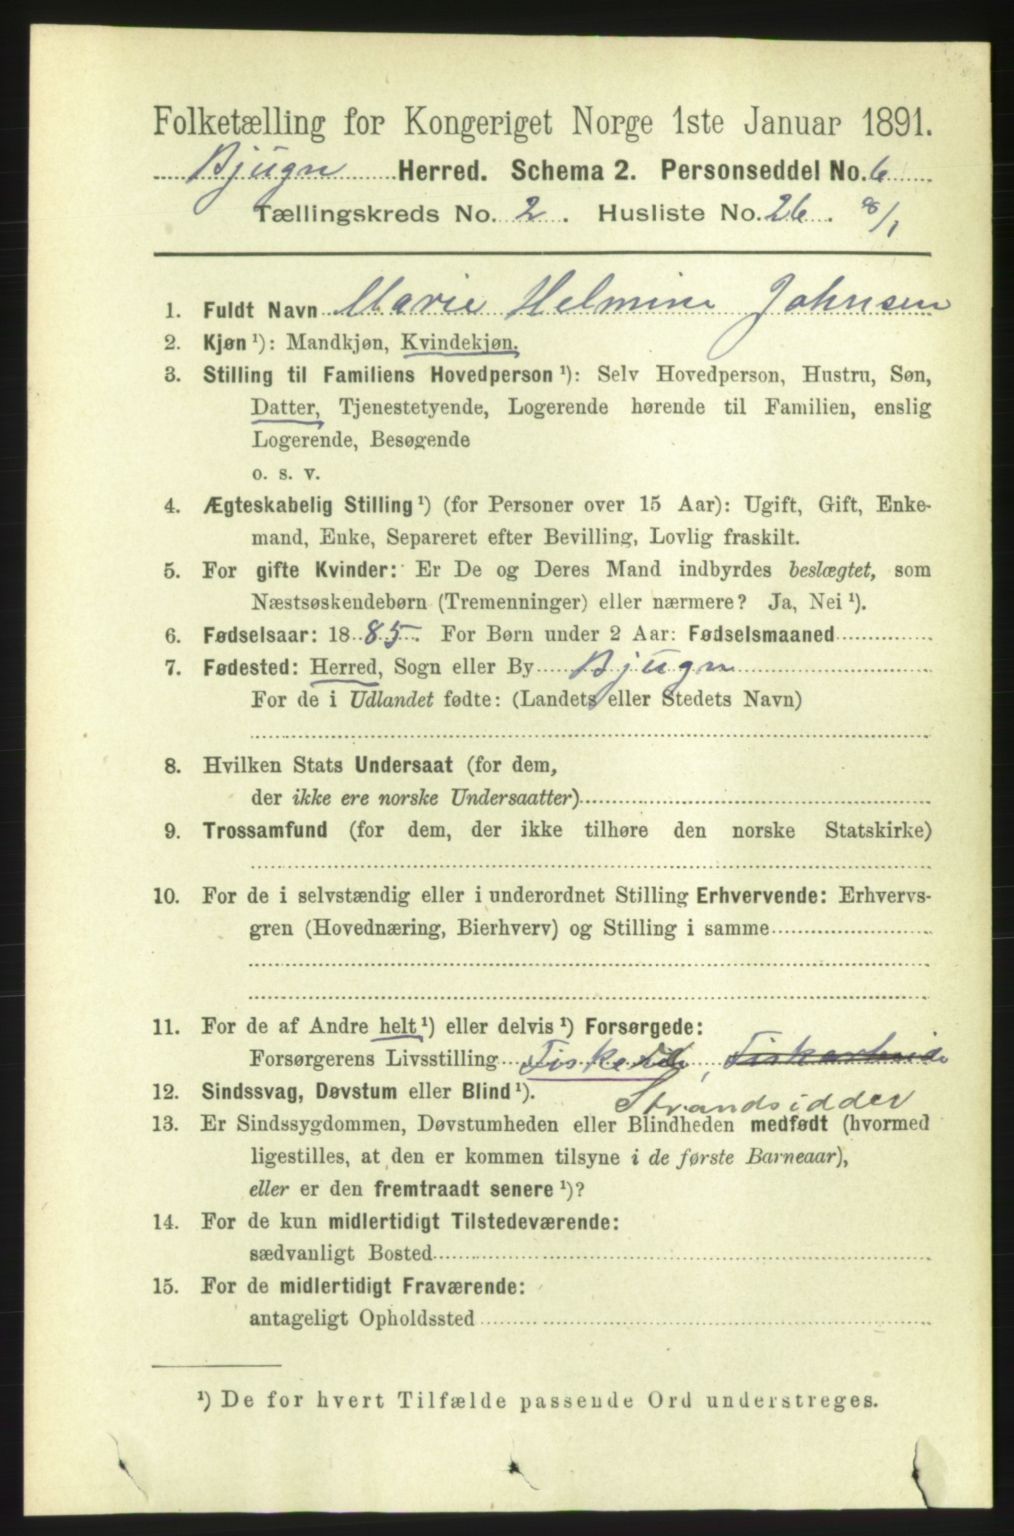 Folketælling for Kongeriget Norge 1ste Januar 1891.
Bjugn Herred. Schema 2. Personseddel No. 6
Tællingskreds No. 2. Husliste No. 26. 8/1
1. Fuldt Navn Marie Helmine Johnsen
2. Kjøn¹): Mandkjøn, Kvindekjøn.
3. Stilling til Familiens Hovedperson¹): Selv Hovedperson, Hustru, Søn,
Datter, Tjenestetyende, Logerende hørende til Familien, enslig
Logerende, Besøgende
o. s. v.
4. Ægteskabelig Stilling¹) (for Personer over 15 Aar): Ugift, Gift, Enke-
mand, Enke, Separeret efter Bevilling, Lovlig fraskilt.
5. For gifte Kvinder: Er De og Deres Mand indbyrdes beslægtet, som
Næstsøskendebørn (Tremenninger) eller nærmere? Ja, Nei¹).
6. Fødselsaar: 1885. For Børn under 2 Aar: Fødselsmaaned
7. Fødested: Herred, Sogn eller By Bjugn
For de i Udlandet fødte: (Landets eller Stedets Navn)
8. Hvilken Stats Undersaat (for dem,
der ikke ere norske Undersaatter)
9. Trossamfund (for dem, der ikke tilhøre den norske Statskirke)
10. For de i selvstændig eller i underordnet Stilling Erhvervende: Erhvervs-
gren (Hovednæring, Bierhverv) og Stilling i samme
11. For de af Andre helt¹) eller delvis¹) Forsørgede:
Forsørgerens Livsstilling
Strandsidder
12. Sindssvag, Døvstum eller Blind¹).
13. Er Sindssygdommen, Døvstumheden eller Blindheden medfødt (hvormed
ligestilles, at den er kommen tilsyne i de første Barneaar),
eller er den fremtraadt senere¹)?
14. For de kun midlertidigt Tilstedeværende:
sædvanligt Bosted
15. For de midlertidigt Fraværende:
antageligt Opholdssted
¹) De for hvert Tilfælde passende Ord understreges.